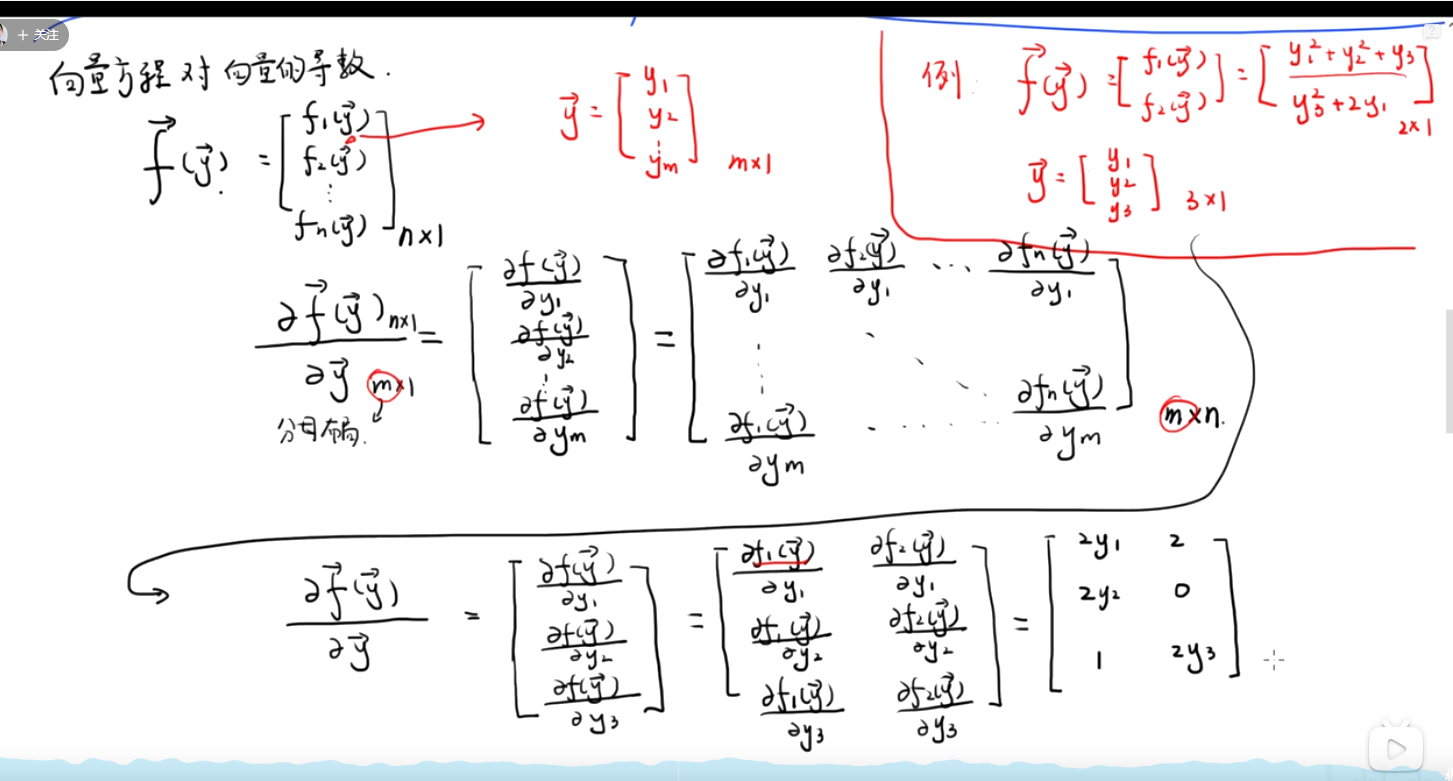 + 关注
向量方程对向量的导数.
f⃗(y⃗) = [f₁(y⃗) f₂(y⃗) ⋮ fₙ(y⃗)] n×1
y⃗ = [y₁ y₂ ⋮ yₘ] m×1
例 f⃗(y⃗) = [f₁(y⃗) f₂(y⃗)] = [y₁²+y₂²+y₃ y₃²+2y₁] 2×1
y⃗ = [y₁ y₂ y₃] 3×1
∂f⃗(y⃗)n×1 / ∂y⃗ m×1 = [∂f(y⃗)/∂y₁ ∂f(y⃗)/∂y₂ ⋮ ∂f(y⃗)/∂yₘ] = [∂f₁(y⃗)/∂y₁ ∂f₂(y⃗)/∂y₁ ⋯ ∂fₙ(y⃗)/∂y₁ ⋮ ⋱ ∂f₁(y⃗)/∂yₘ ⋯ ∂fₙ(y⃗)/∂yₘ] m×n.
分母布局.
∂f⃗(y⃗)/∂y⃗ = [∂f(y⃗)/∂y₁ ∂f(y⃗)/∂y₂ ∂f(y⃗)/∂y₃] = [∂f₁(y⃗)/∂y₁ ∂f₂(y⃗)/∂y₁ ∂f₁(y⃗)/∂y₂ ∂f₂(y⃗)/∂y₂ ∂f₁(y⃗)/∂y₃ ∂f₂(y⃗)/∂y₃] = [2y₁ 2 2y₂ 0 1 2y₃]